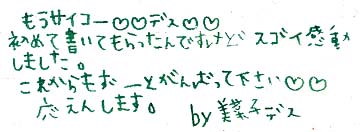 もうサイコー♡♡デス♡♡
初めて書いてもらったんですけどスゴイ感動
しました。
これからもずーっとがんばって下さい♡♡
応えんします。 by 美葉子デス